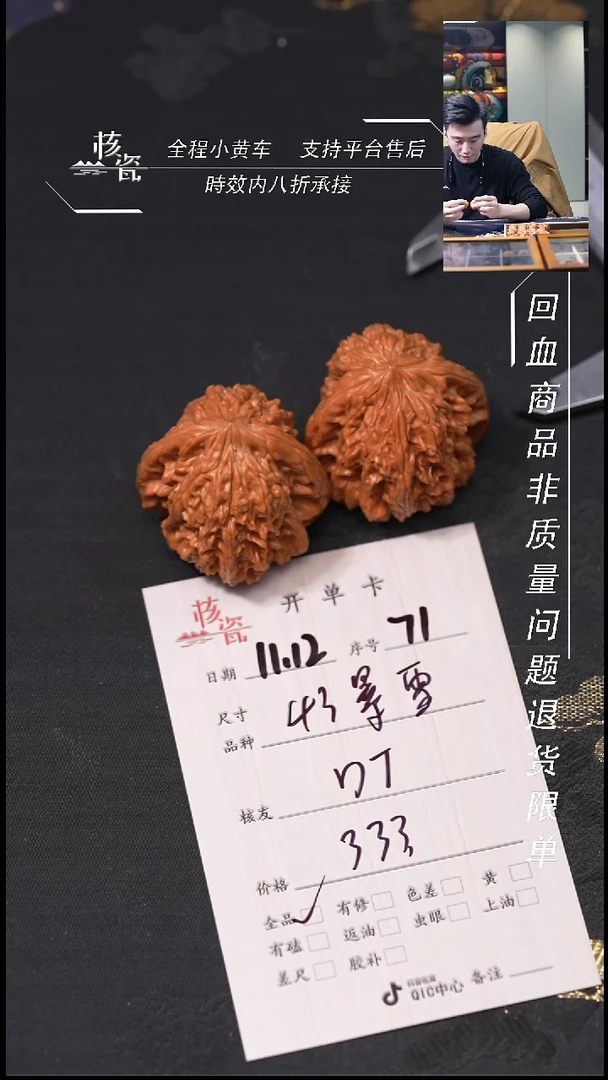 核瓷
全程小黄车 支持平台售后
時效内八折承接
回血商品非质量问题退货限单
核瓷
开单卡
日期 11.12 序号 71
尺寸 43暴雪
品种
核友
价格 333
全品 ✓ 有修 色差 黄
有磕 返油 虫眼 上油
差尺 胶补
QIC中心 备注